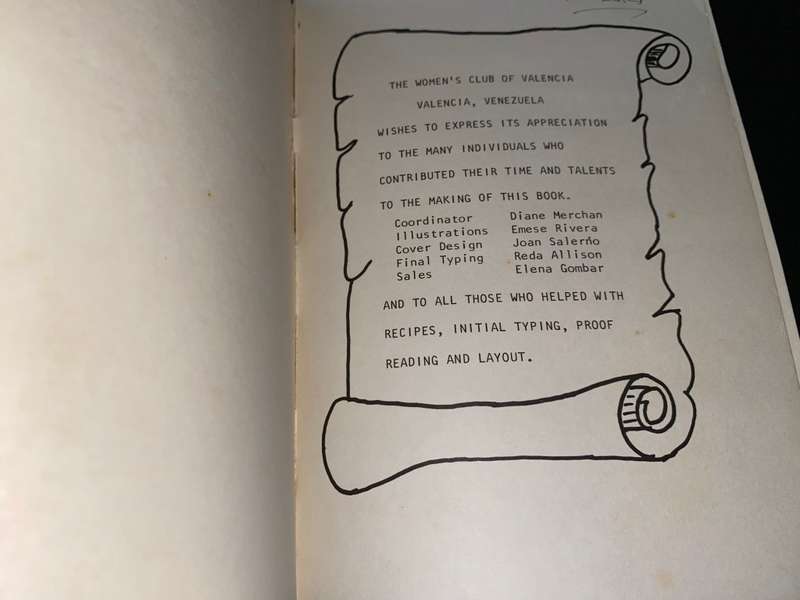 THE WOMEN'S CLUB OF VALENCIA
VALENCIA, VENEZUELA
WISHES TO EXPRESS ITS APPRECIATION
TO THE MANY INDIVIDUALS WHO
CONTRIBUTED THEIR TIME AND TALENTS
TO THE MAKING OF THIS BOOK.
Coordinator Diane Merchan
Illustrations Emese Rivera
Cover Design Joan Salerno
Final Typing Reda Allison
Sales Elena Gombar
AND TO ALL THOSE WHO HELPED WITH
RECIPES, INITIAL TYPING, PROOF
READING AND LAYOUT.